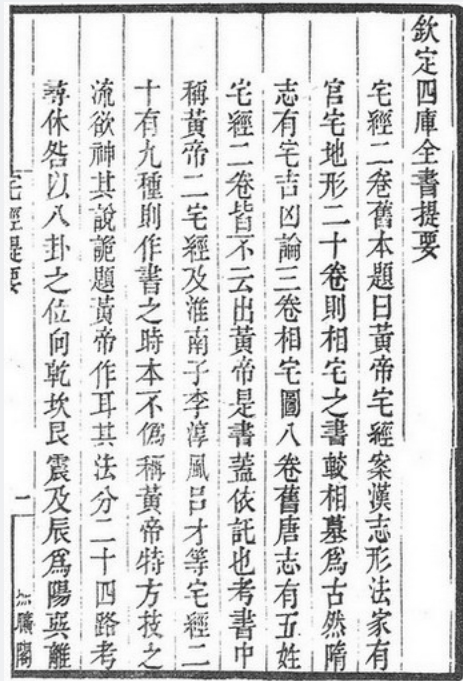 欽定四庫全書提要
宅經二卷舊本題曰黃帝宅經案漢志形法家有
宮宅地形二十卷則相宅之書較相墓爲古然隋
志有宅吉凶論三卷相宅圖八卷舊唐志有五姓
宅經二卷皆不云出黃帝是書蓋依託也考書中
稱黃帝二宅經及淮南子李淳風呂才等宅經二
十有九種則作書之時本不僞稱黃帝特方技之
流欲神其說詭題黃帝作耳其法分二十四路考
尋休咎以八卦之位向乾坎艮震及辰爲陽巽離
宅經提要